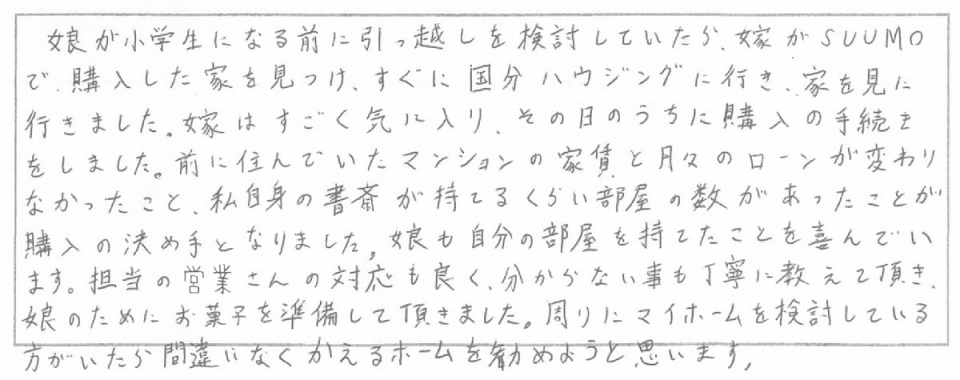 娘が小学生になる前に引っ越しを検討していたら、嫁がSUUMO
で、購入した家を見つけ、すぐに国分ハウジングに行き、家を見に
行きました。嫁はすごく気に入り、その日のうちに購入の手続き
をしました。前に住んでいたマンションの家賃と月々のローンが変わり
なかったこと、私自身の書斎が持てるくらい部屋の数があったことが
購入の決め手となりました。娘も自分の部屋を持てたことを喜んでい
ます。担当の営業さんの対応も良く、分からない事も丁寧に教えて頂き、
娘のためにお菓子を準備して頂きました。周りにマイホームを検討している
方がいたら間違いなくかえるホームを勧めようと思います。